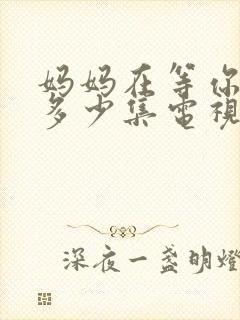 妈妈在等你
多少集電視
深夜一盏明燈